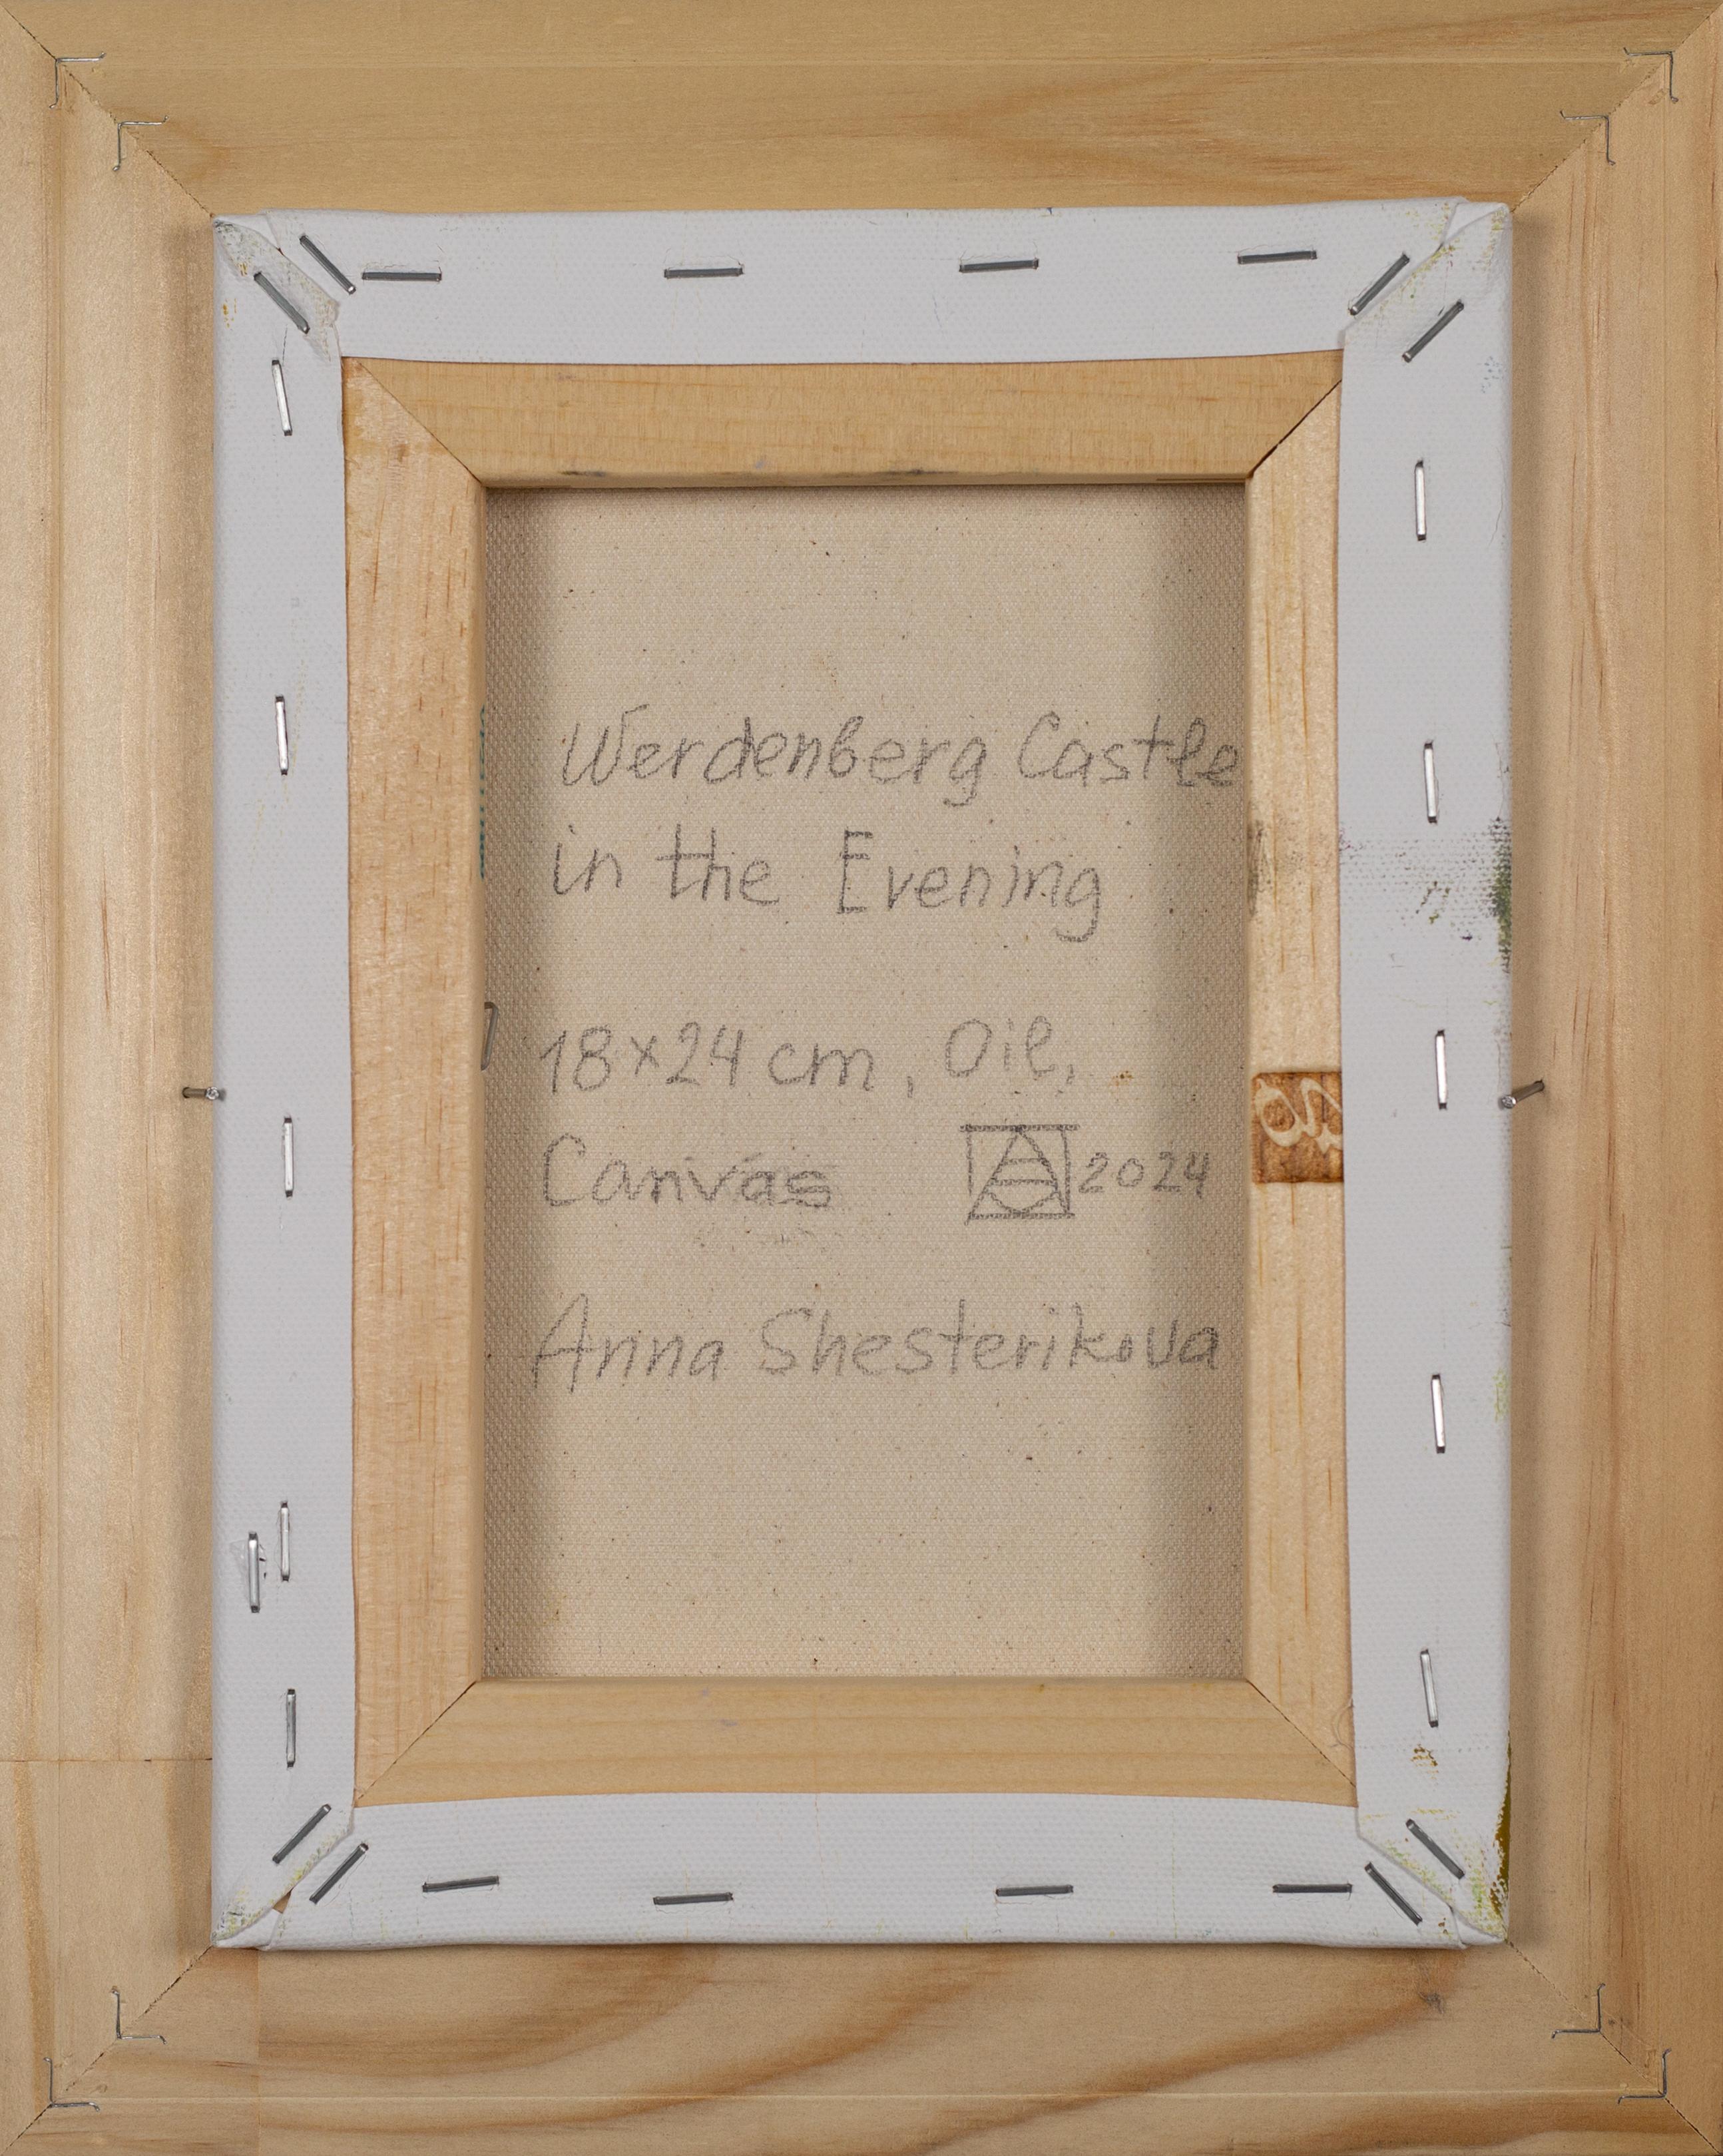 Werdenberg Castle
in the Evening
18×24 cm, Oil,
Canvas 2024
Anna Shesterikova